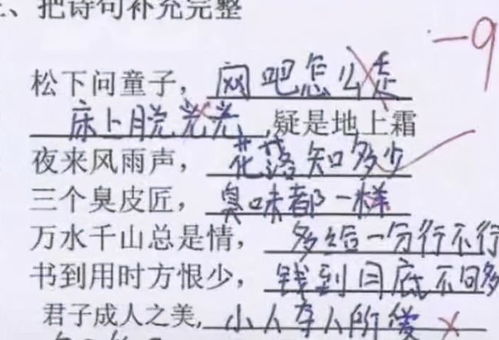 三、把诗句补充完整
-9
松下问童子，网吧怎么走
床上脱光光,疑是地上霜
夜来风雨声，花落知多少
三个臭皮匠，臭味都一样
万水千山总是情，多给一分行不行
书到用时方恨少，钱到月底不回多
君子成人之美,小人夺人所爱